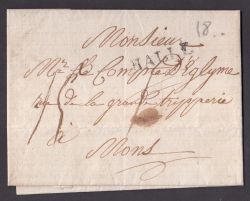 18.
Monsieur
HALLE
Mr. le Compte D'Eglyme
rue de la grande tripperie
à
Mons